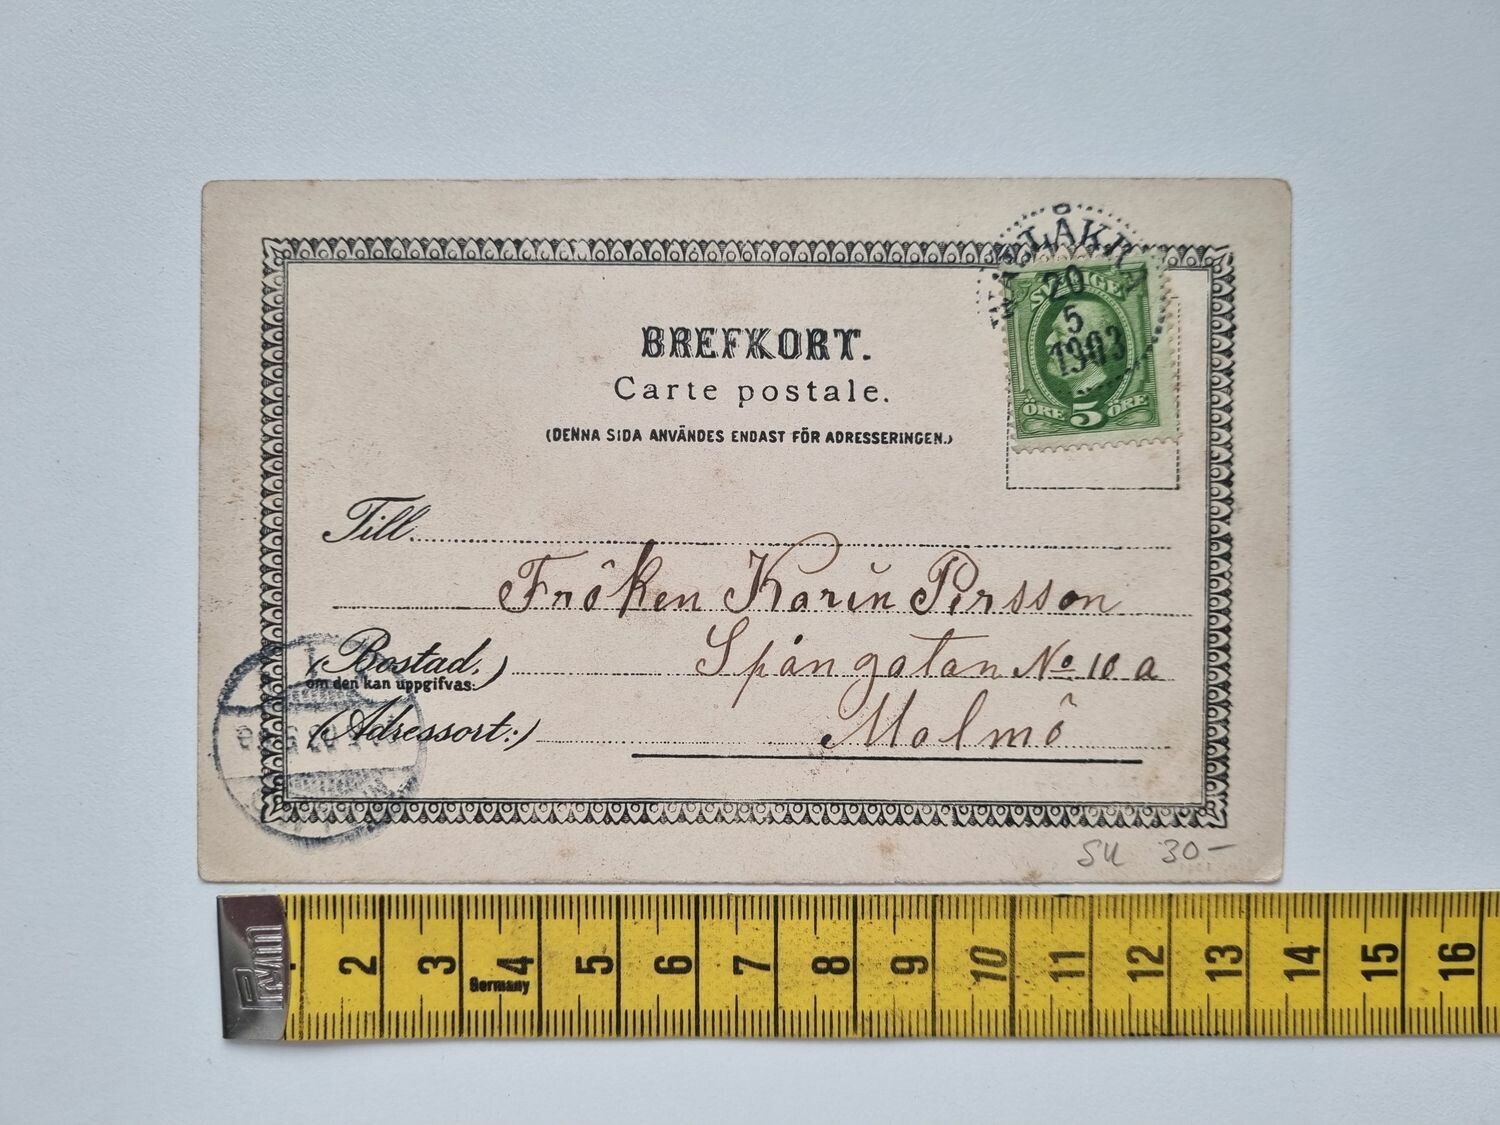 WALLÅKRA
20
5
1903
SVERIGE
ÖRE 5 ÖRE
BREFKORT.
Carte postale.
(DENNA SIDA ANVÄNDES ENDAST FÖR ADRESSERINGEN.)
Till
Fröken Karin Persson
(Bostad,)
om den kan uppgifvas:
Spångatan No 10 a
(Adressort:)
Malmö
SU 30-
2 3 4 5 6 7 8 9 10 11 12 13 14 15 16
Germany